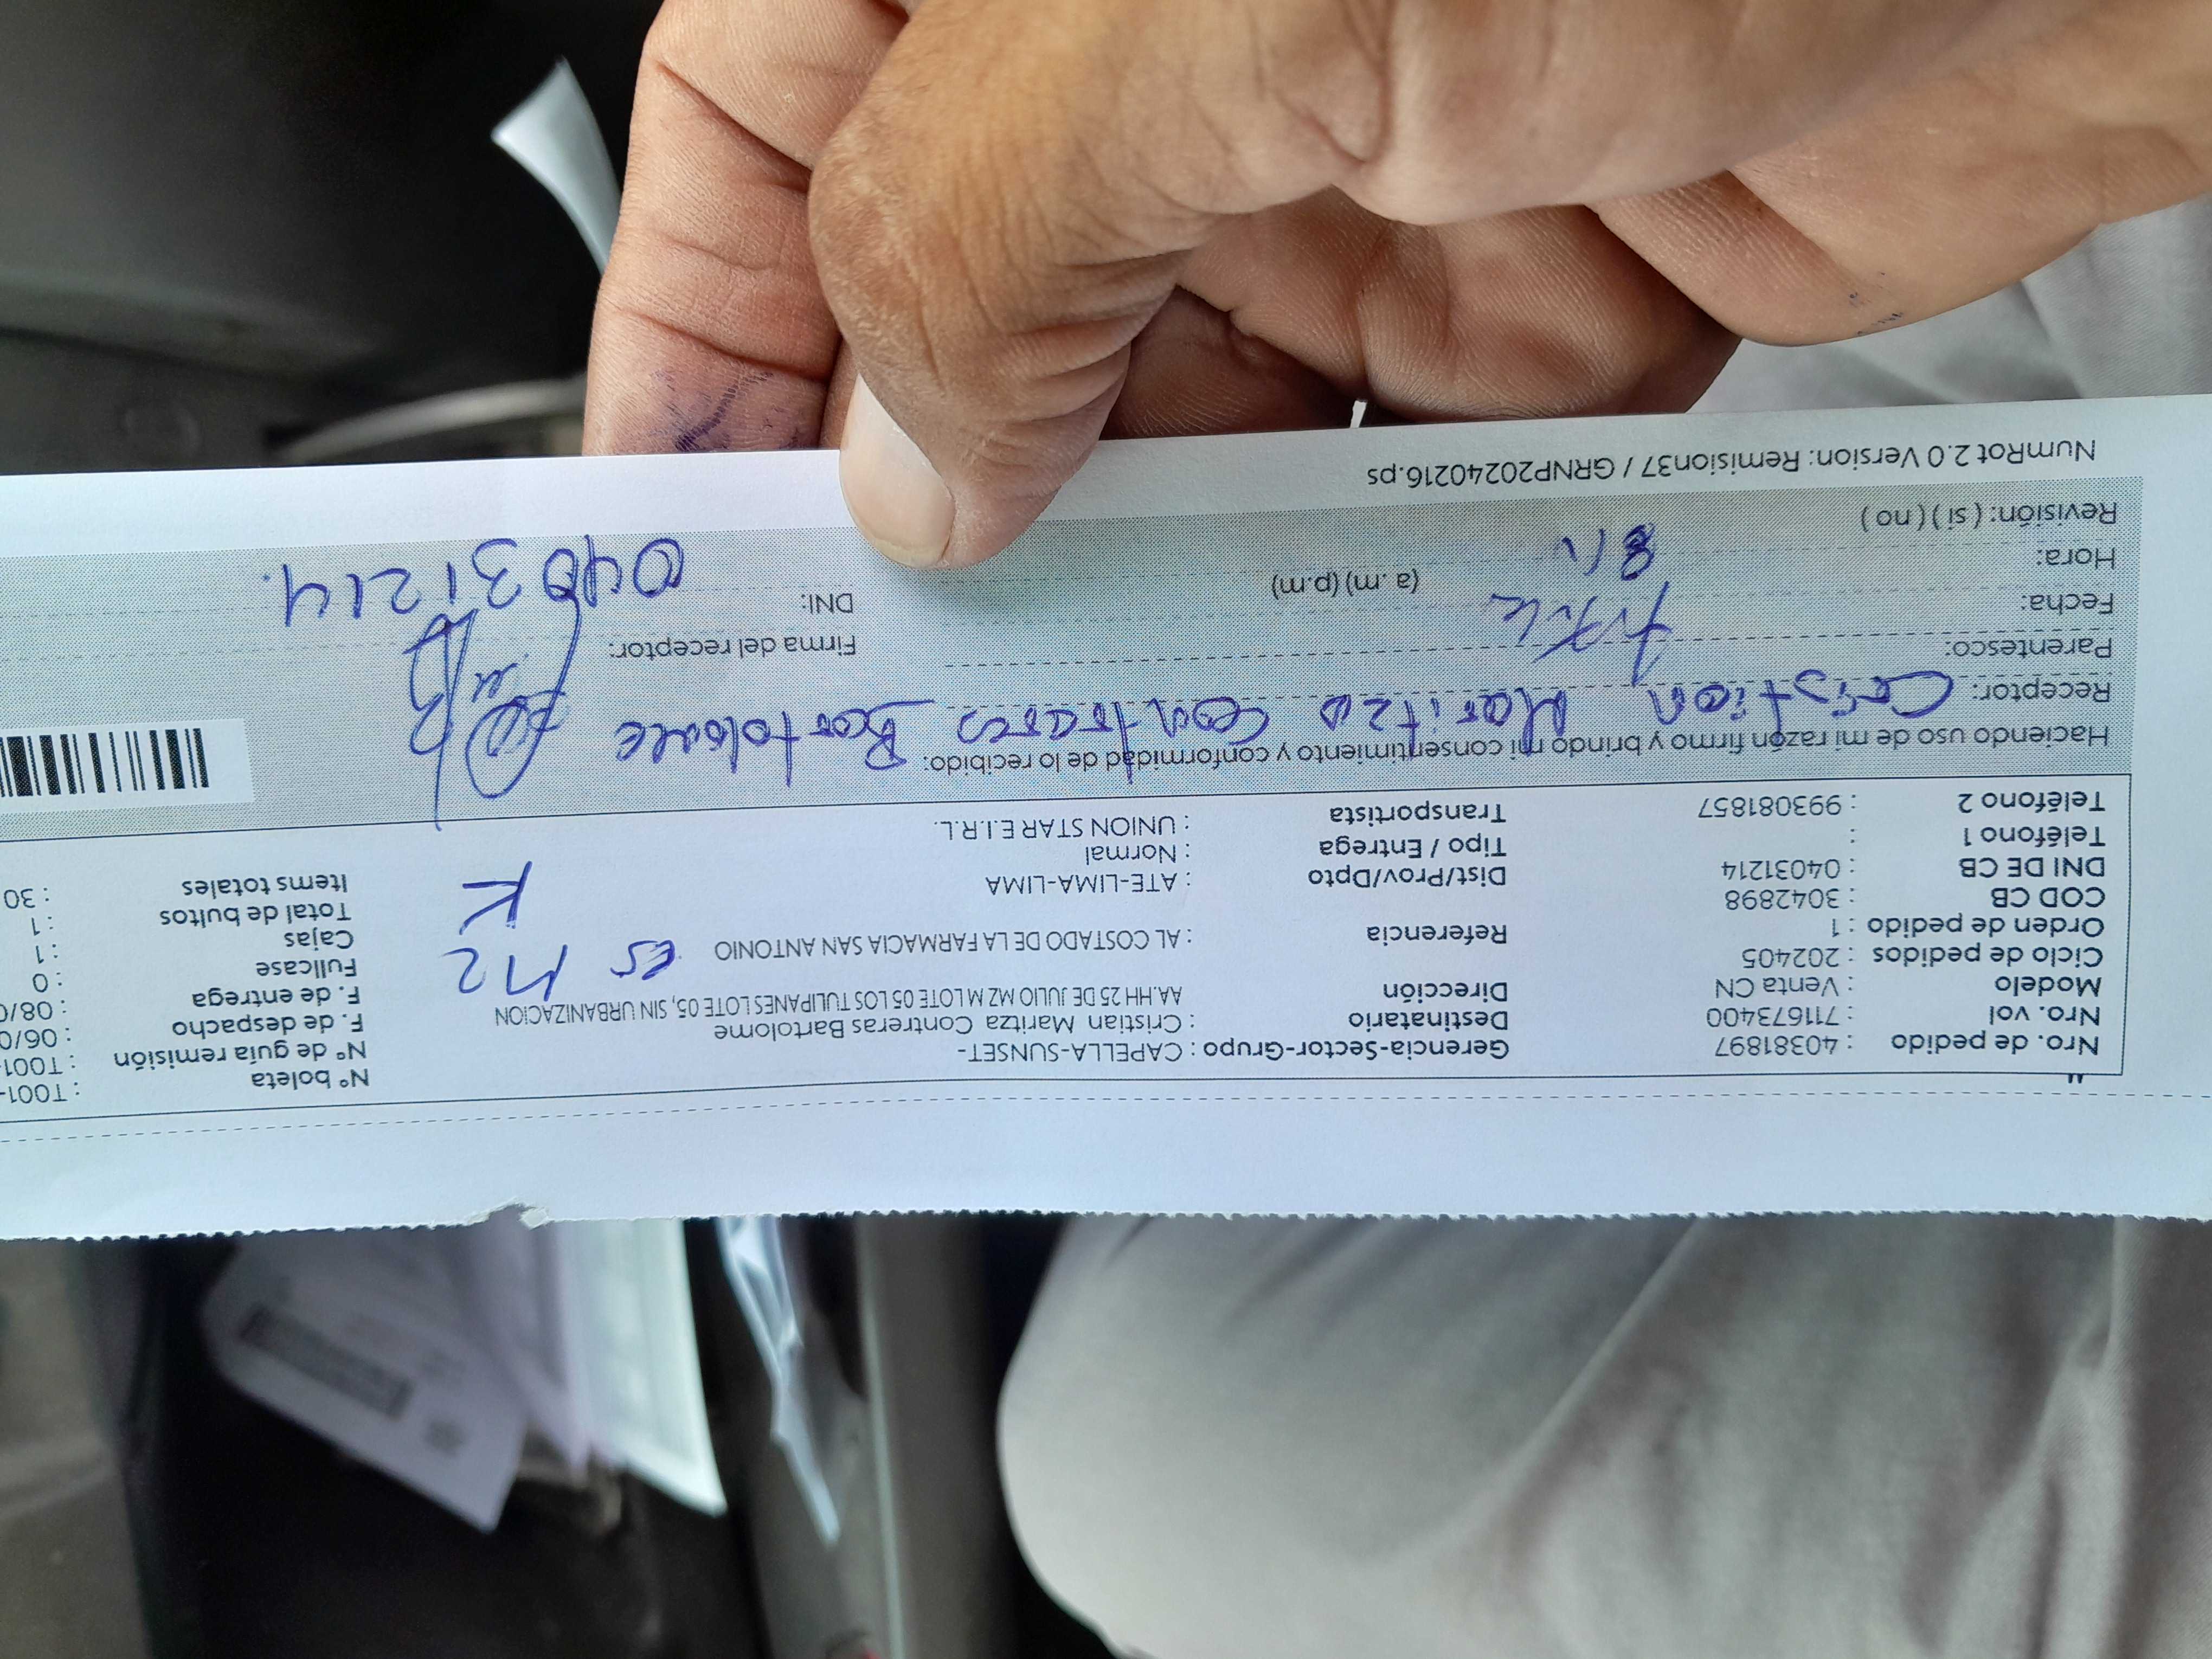 Nro. de pedido : 40381897
Nro. vol : 711673400
Modelo : Venta CN
Ciclo de pedidos : 202405
Orden de pedido : 1
COD CB : 3042898
DNI DE CB : 04031214
Teléfono 1 :
Teléfono 2 : 993081857
Gerencia-Sector-Grupo : CAPELLA-SUNSET-
Destinatario : Cristian Maritza Contreras Bartolome
Dirección AA.HH 25 DE JULIO MZ M LOTE 05 LOS TULIPANES LOTE 05, SIN URBANIZACION
Referencia : AL COSTADO DE LA FARMACIA SAN ANTONIO
Dist/Prov/Dpto : ATE-LIMA-LIMA
Tipo / Entrega : Normal
Transportista : UNION STAR E.I.R.L.
es Mz
K
N° boleta : T001-
N° de guía remisión : T001-
F. de despacho : 06/0
F. de entrega : 08/0
Fullcase : 0
Cajas : 1
Total de bultos : 1
Items totales : 30
Haciendo uso de mi razón firmo y brindo mi consentimiento y conformidad de lo recibido:
Receptor: Cristian Maritza Contreras Bartolome
Parentesco:
Firma del receptor:
Fecha:
DNI: 04031214.
Hora: (a. m) (p.m)
Revisión: ( si ) ( no )
NumRot 2.0 Version: Remision37 / GRNP20240216.ps